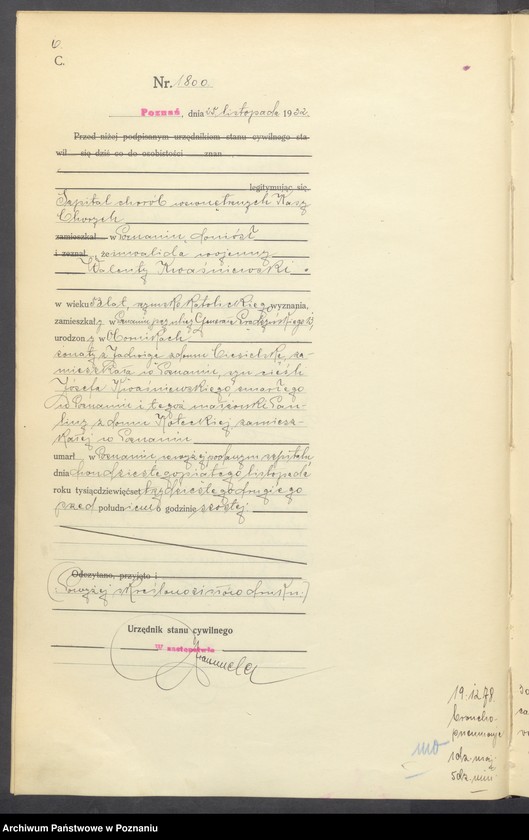 6.
C.
Nr. 1800
Poznań, dnia 25 listopada 1932.
Przed niżej podpisanym urzędnikiem stanu cywilnego sta-
wił się dziś co do osobistości znan
legitymując się
Szpital chorób wewnętrznych Kasy
Chorych
zamieszkał w Poznaniu doniósł
i zeznał, że inwalida wojenny
Walenty Kwaśniewski
w wieku lat, rzymsko katolickiego wyznania,
zamieszkały w Poznaniu przy ulicy Generała Prądzyńskiego
urodzony w Obornikach
żonaty z Jadwigą z domu za-
mieszkałą w Poznaniu, syn cieśli
Józefa Kwaśniewskiego zmarłego
w Poznaniu i tegoż małżonki Pau-
liny z domu zamiesz-
kałej w Poznaniu
umarł w Poznaniu, w wyżej podanym szpitalu
dnia dwudziestego piątego listopada
roku tysiącdziewięćset trzydziestego drugiego
przed południem o godzinie szóstej.
Odczytano, przyjęto i
(Powyżej skreślono druku.)
Urzędnik stanu cywilnego
W zastępstwie
19. 12 78
broncho-
pneumonje
mo
1 dz. męż
5 dz.
Archiwum Państwowe w Poznaniu